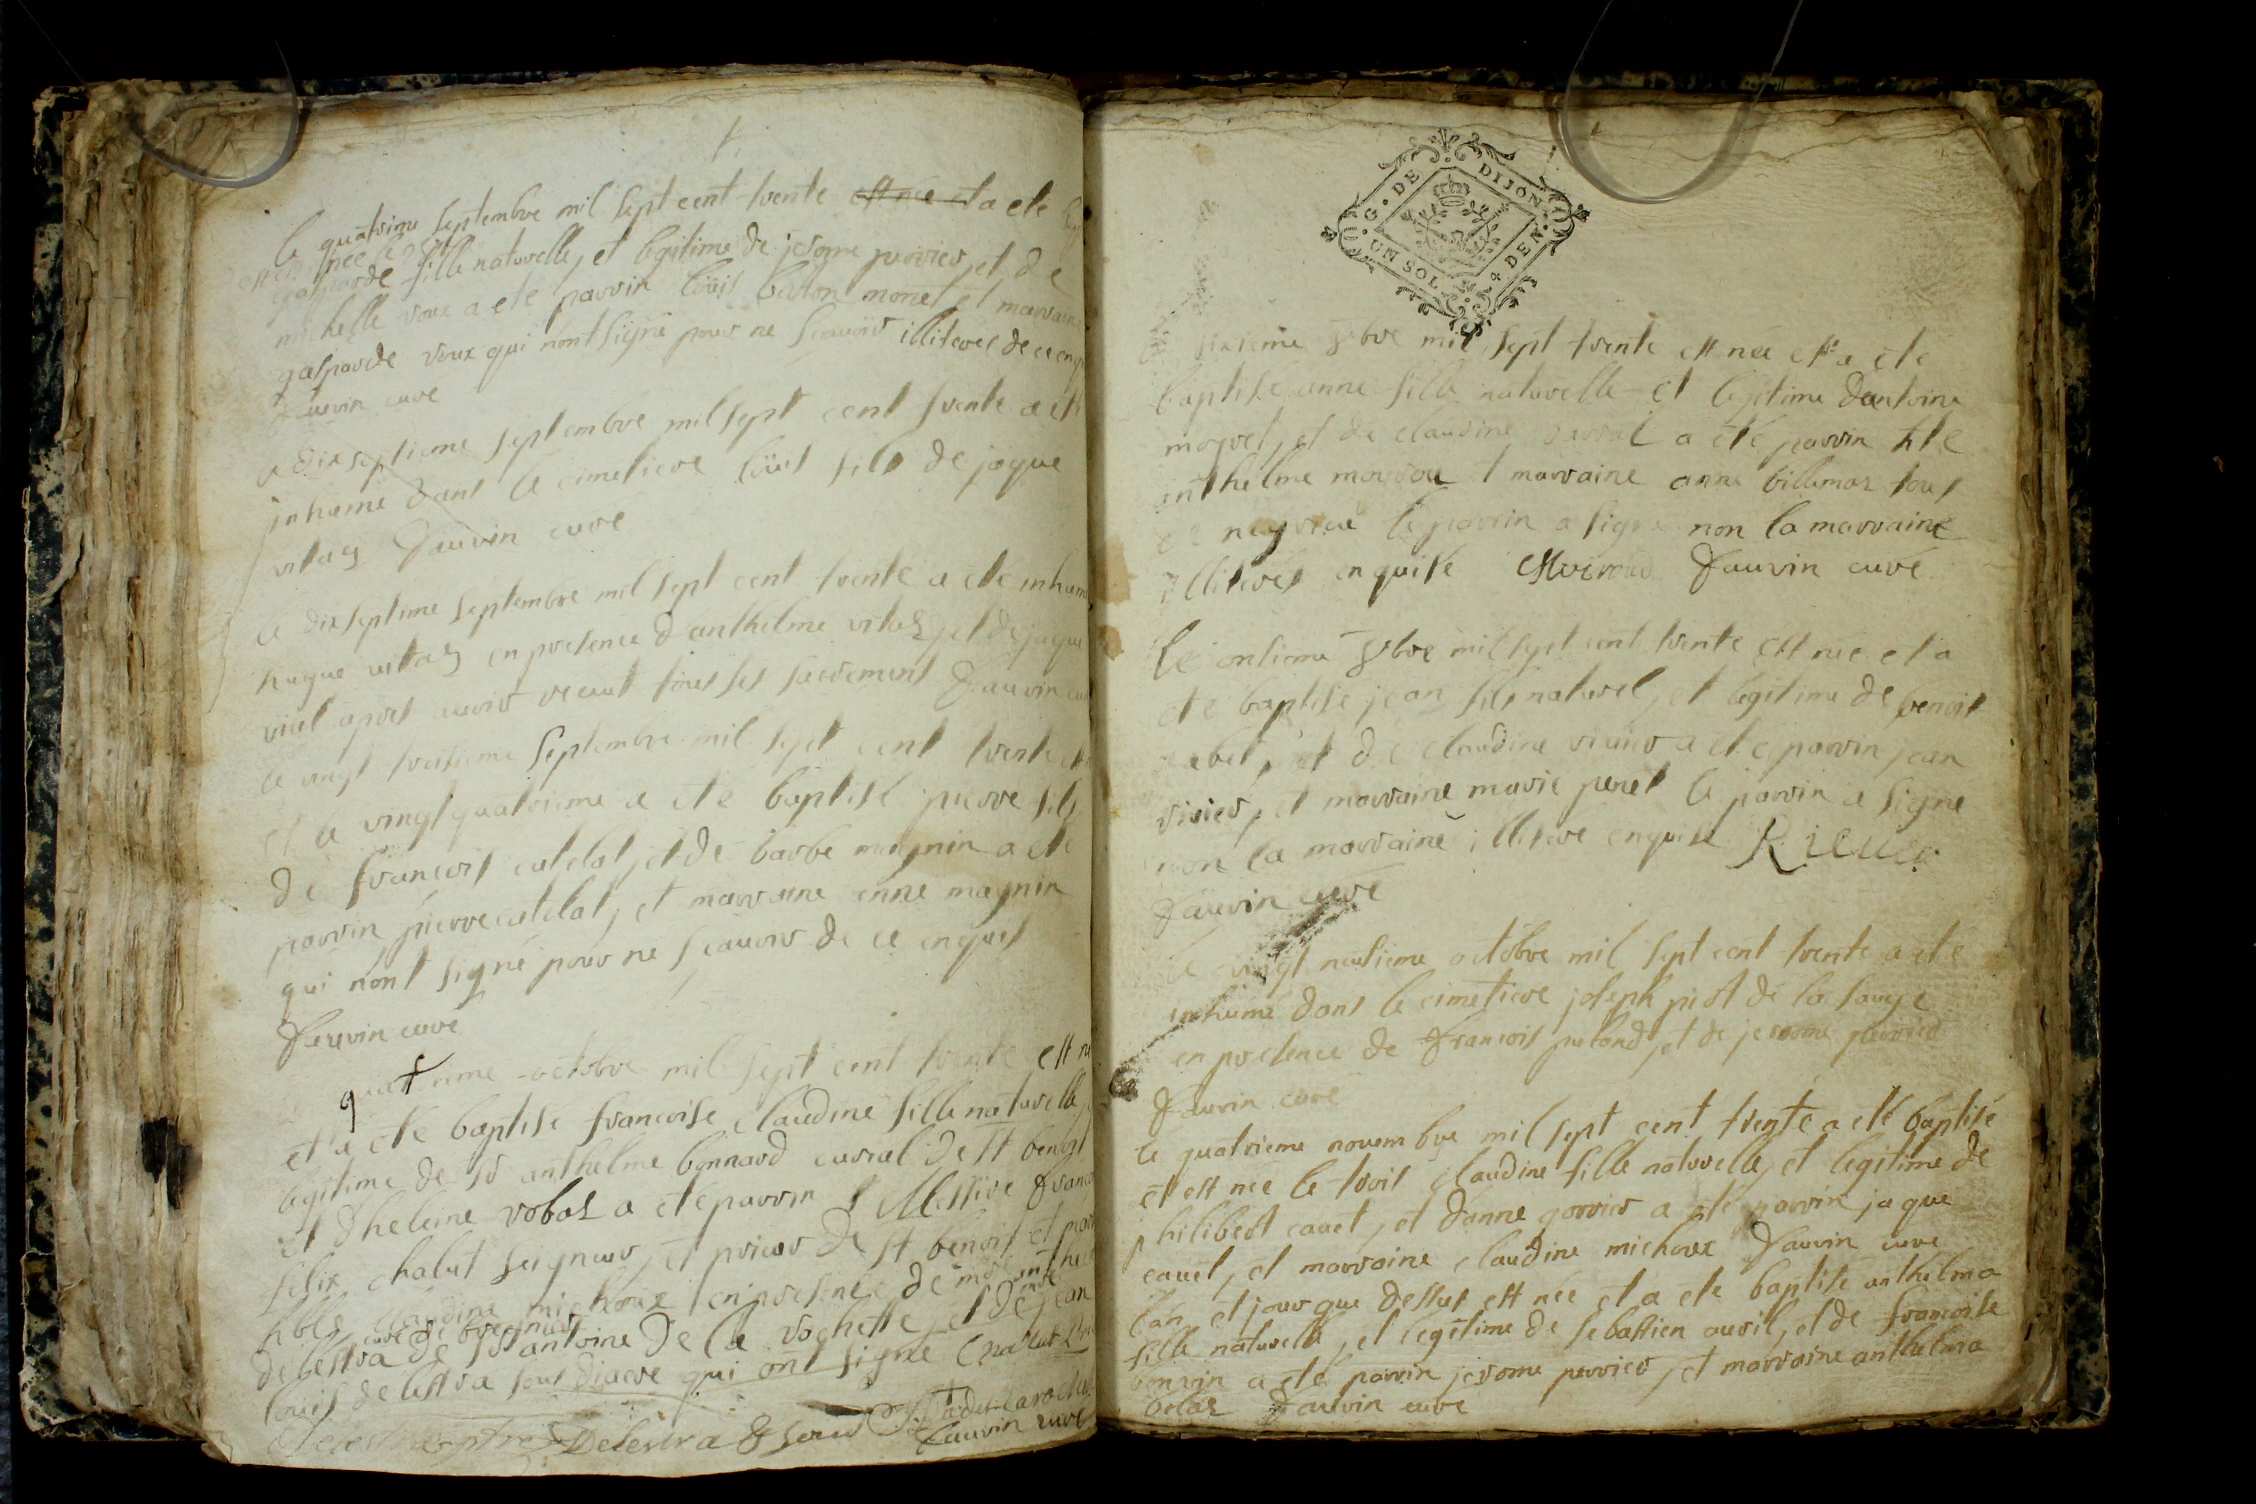 le quatrime septembre mil sept cent trente est née et a ete
est née le
gasparde fille naturelle, et legitime de jerome perrier, et de
michelle voux a ete parrin loüis monet et marraine
gasparde voux qui nont signé pour ne scauoir illiterés de ce enquis
Fauvin curé
a dix septieme septembre mil sept cent trente a eté
inhumé dans le cimetiere loüis fils de jaque
vitaz Fauvin curé
le dix septime septembre mil sept cent trente a ete inhumé
hugue vitaz en presence danthelme vitaz, et de jaque
vial apres auoir recut tous ses sacrement Fauvin curé
le vingt troisieme septembre mil sept cent trente est
et le vingt quatrieme a ete baptisé pierre fils
de francois catelat, et de barbe magnin a ete
parrin pierre catelat, et marraine anne magnin
qui nont signé pour ne scauoir de ce enquis
Fauvin curé
quatrieme octobre mil sept cent trente est né
et a ete baptisé francoise claudine fille naturelle,
legitime de sr anthelme bonnard curial de st benoit
et dheleine vobaz a ete parrin Messire Francois
felix chalut seigneur, et prieur de st benoit et
claudine michoux en presence de
curé de bregnier
delestra de sr antoine de la vochette, et de jean
louis delestra sous diacre qui ont signé Chalut
Delestra ptre Delestra
Fauvin curé
G. DE DIJON
UN SOL 4 DEN.
sixieme 8bre mil sept trente est née et a ete
baptisé anne fille naturelle et legitime dantoine
moquet, et de claudine a été parrin
anthelme et marraine anne billemaz tous
le parrin a signé non la marraine
illiterés enquise Fauvin curé
Le onsieme 8bre mil sept cent trente est née et a
ete baptisé jean fils naturel, et legitime de benoit
et de claudine riuier a ete parrin jean
riuier, et marraine marie penet le parrin a signé
non la marraine illitere enquise Riuier
Fauvin curé
le vingt neusieme octobre mil sept cent trente a eté
inhumé dans le cimetiere joseph piot de la sauge
en presence de francois et de jerome perrier
Fauvin curé
le quatrieme novembre mil sept cent trente a eté baptisé
et est née le trois claudine fille naturelle, et legitime de
philibert cauet, et danne gorrier a eté parrin jaque
cauet, et marraine claudine michoux Fauvin curé
lan, et jour que dessus est née et a ete baptisé anthelma
fille naturelle, et legitime de sebastien auril, et de francoise
bonvin a eté parrin jerome perrier, et marraine anthelma
Fauvin curé